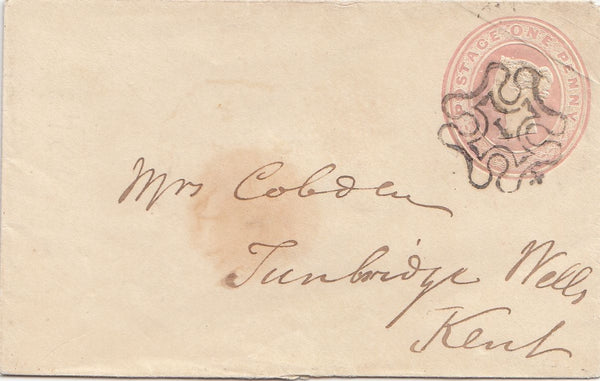 POSTAGE ONE PENNY
Mrs Cobden
Tunbridge Wells
Kent